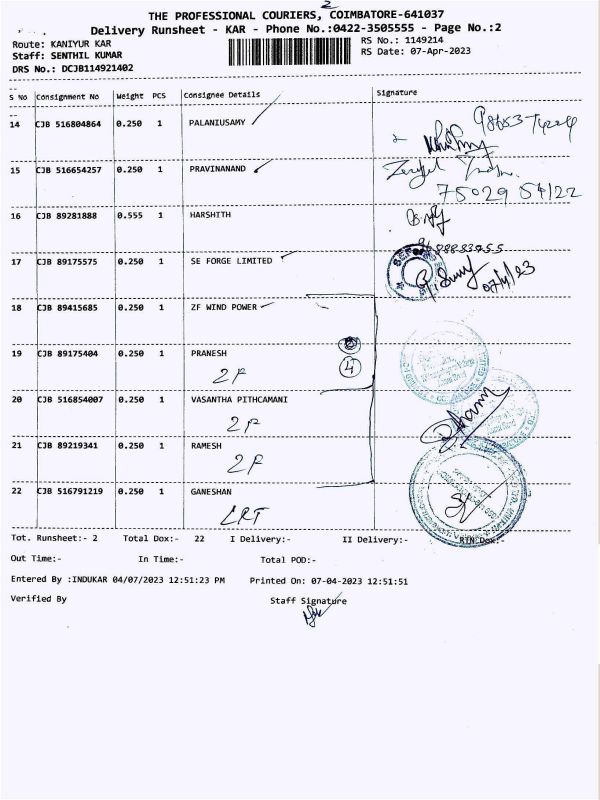 2
THE PROFESSIONAL COURIERS, COIMBATORE-641037
Delivery Runsheet - KAR - Phone No.:0422-3505555 - Page No.:2
Route: KANIYUR KAR
RS No.: 1149214
Staff: SENTHIL KUMAR
RS Date: 07-Apr-2023
DRS No.: DCJB114921402
S No Consignment No Weight PCS Consignee Details Signature
14 CJB 516804864 0.250 1 PALANIUSAMY
15 CJB 516654257 0.250 1 PRAVINANAND
75029 54122
16 CJB 89281888 0.555 1 HARSHITH
17 CJB 89175575 0.250 1 SE FORGE LIMITED
07/4/23
18 CJB 89415685 0.250 1 ZF WIND POWER
19 CJB 89175404 0.250 1 PRANESH
4
2F
20 CJB 516854007 0.250 1 VASANTHA PITHCAMANI
2F
21 CJB 89219341 0.250 1 RAMESH
2F
22 CJB 516791219 0.250 1 GANESHAN
CRT
Tot. Runsheet:- 2 Total Dox:- 22 I Delivery:- II Delivery:- RTN Dox:-
Out Time:- In Time:- Total POD:-
Entered By :INDUKAR 04/07/2023 12:51:23 PM Printed On: 07-04-2023 12:51:51
Verified By Staff Signature